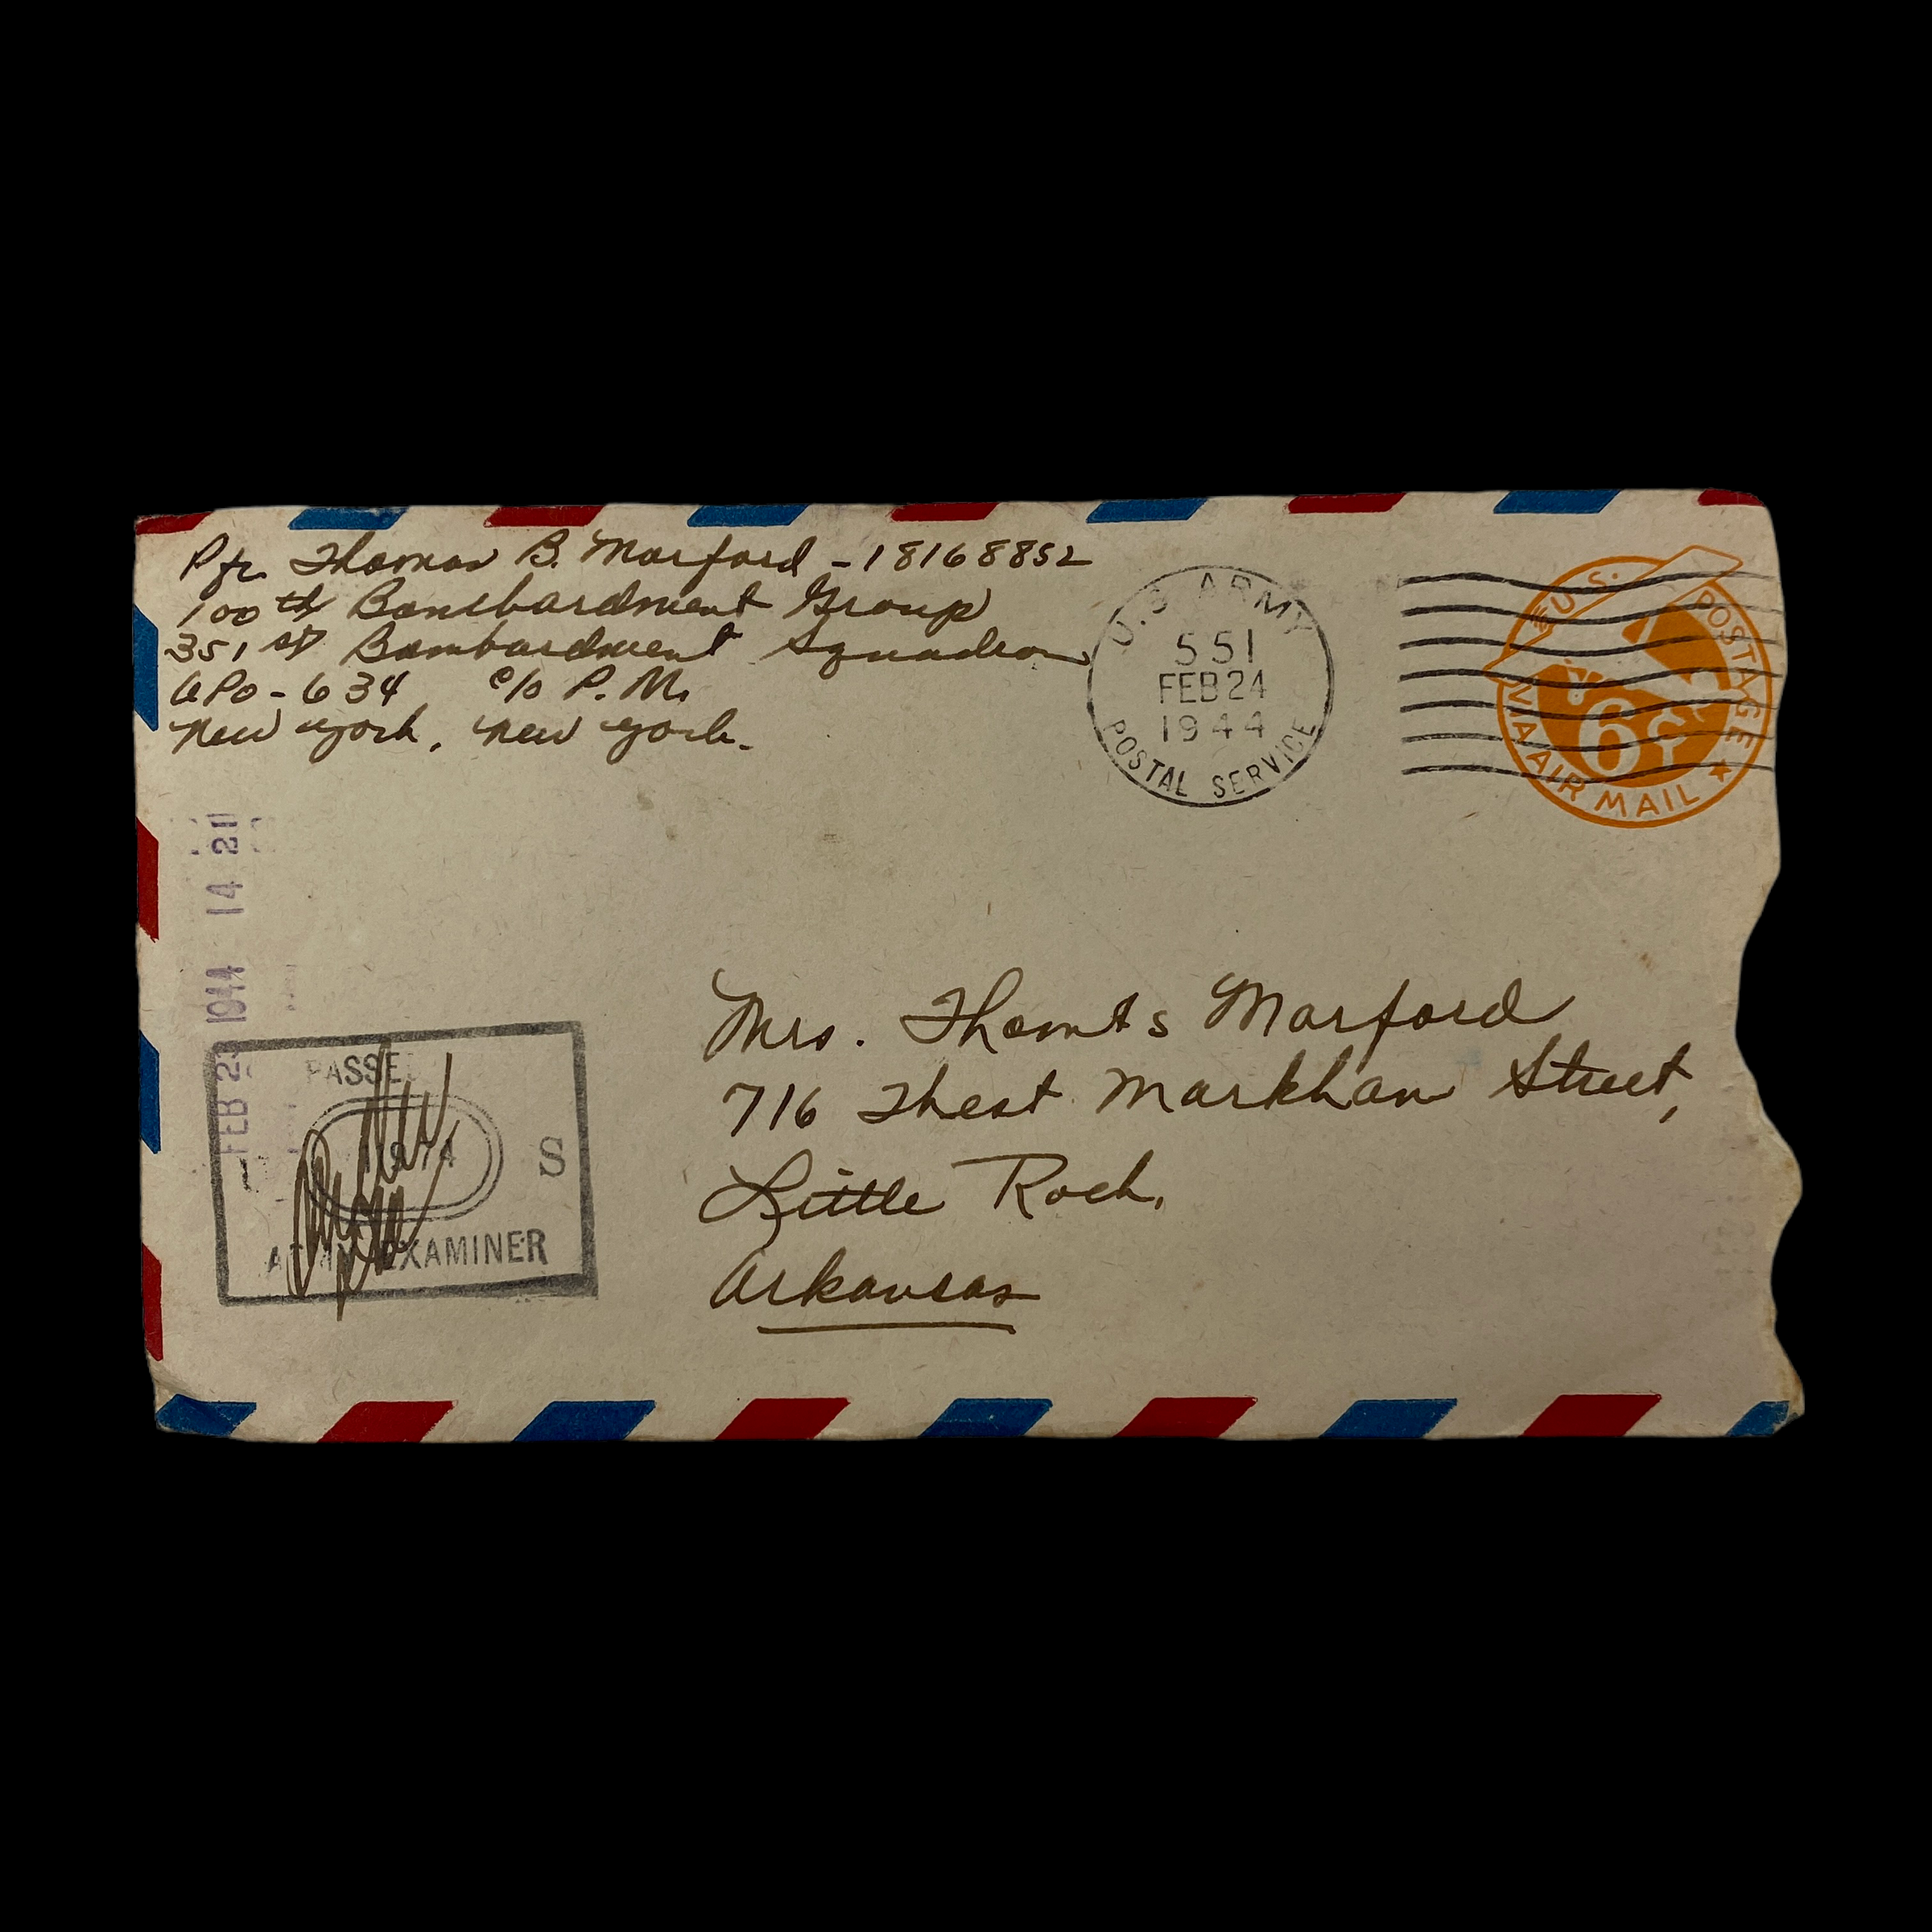 Pfc. Thomas B. Morford - 18168852
100th Bombardment Group
351st Bombardment Squadron
APO - 634 c/o P. M.
New York, New York.
U.S. ARMY
551
FEB 24
1944
POSTAL SERVICE
U.S. POSTAGE
6¢
VIA AIR MAIL
FEB 23 1944 14 21
PASSE
S
ARMY EXAMINER
Mrs. Thomas Morford
716 West Markham Street,
Little Rock,
Arkansas